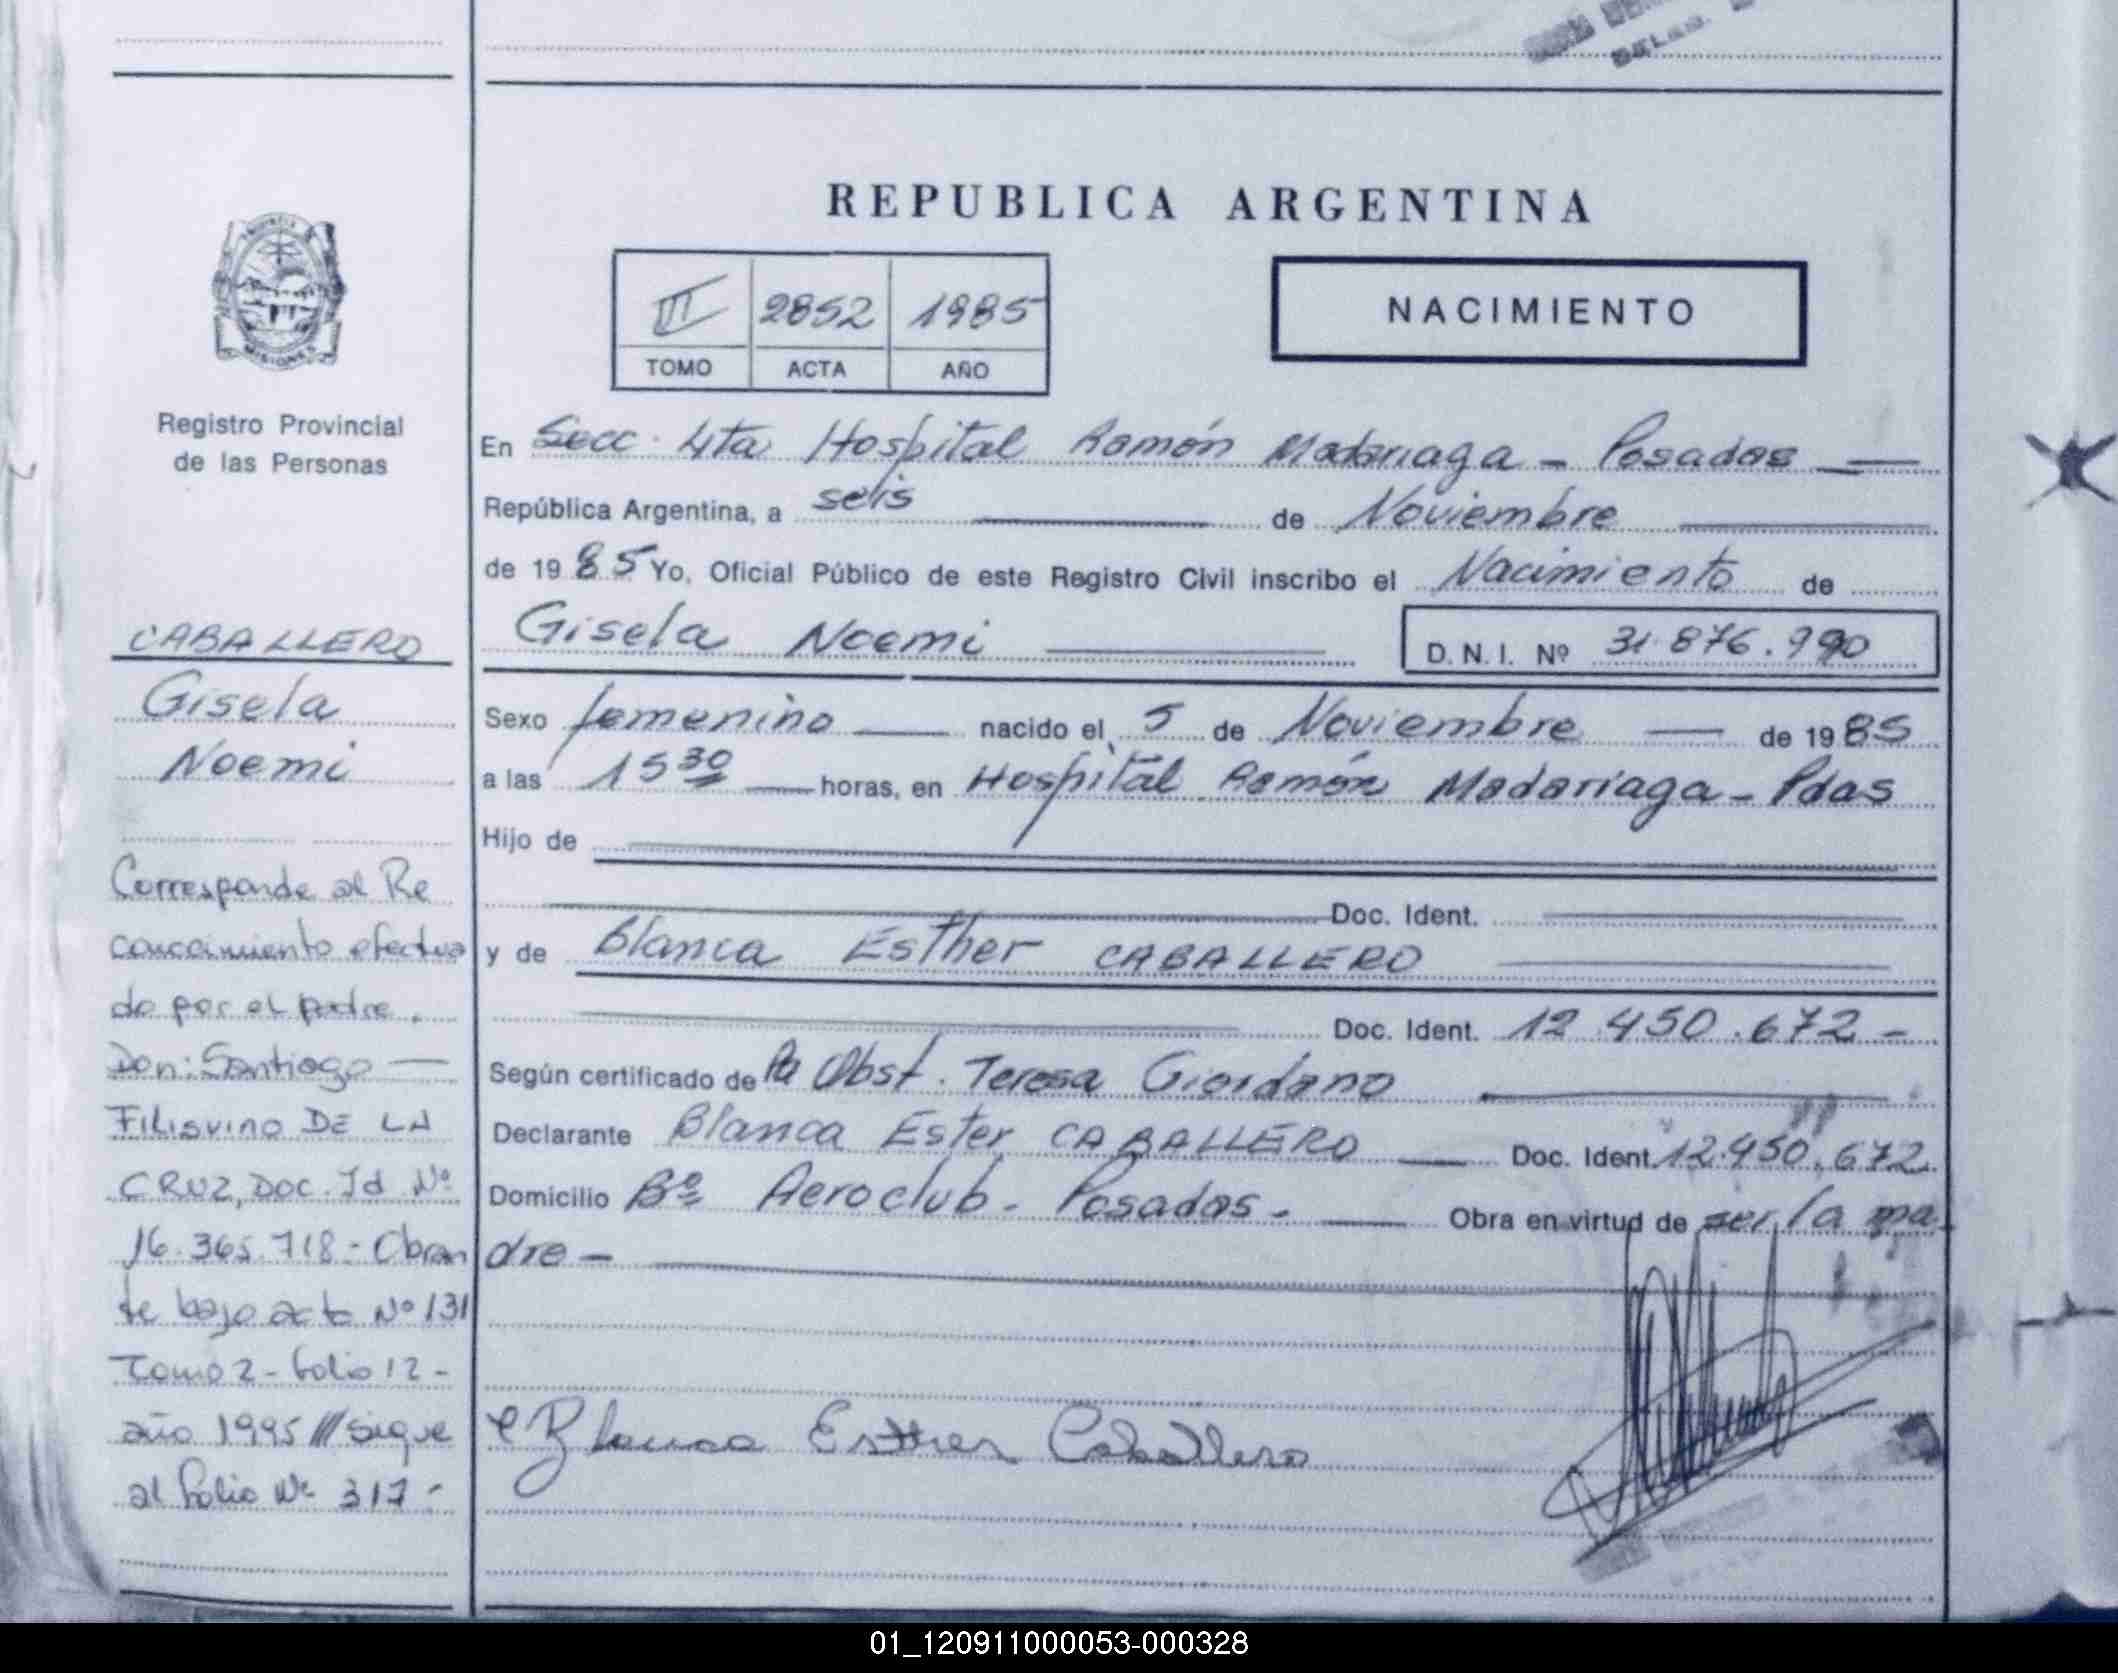 REPUBLICA ARGENTINA
MISIONES
III 2852 1985
TOMO ACTA AÑO
NACIMIENTO
Registro Provincial
de las Personas
CABALLERO
Gisela
Noemi
Corresponde al Re
conocimiento efectua
do por el padre.
Don: Santiago —
FILISVINO DE LA
CRUZ, Doc. Id Nº
16.365.718 - Obran
te bajo acta Nº 131
Tomo 2 - folio 12 -
año 1995 /// sigue
al folio Nº 317 -
En Secc. 4ta Hospital Ramón Madariaga - Posadas —
República Argentina, a seis — de Noviembre —
de 1985 Yo, Oficial Público de este Registro Civil inscribo el Nacimiento de
Gisela Noemi — D. N. I. Nº 31.876.990
Sexo femenino — nacido el 5 de Noviembre — de 1985
a las 15 30 — horas, en Hospital Ramón Madariaga - Pdas
Hijo de —
— Doc. Ident. —
y de Blanca Esther CABALLERO —
— Doc. Ident. 12.450.672 -
Según certificado de Pa Obst. Teresa Giordano —
Declarante Blanca Ester CABALLERO — Doc. Ident. 12.450.672
Domicilio Bº Aeroclub - Posadas. — Obra en virtud de ser la ma
dre —
Blanca Esther Caballero
01_120911000053-000328